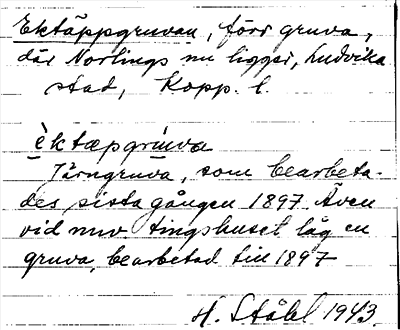 Ektäppgruvan, förr gruva,
där Norlings nu ligger, Ludvika
stad, Kopp. l.
èktæpgrùva
Järngruva, som bearbeta-
des sista gången 1897. Även
vid nuv tingshuset låg en
gruva, bearbetad till 1897
H. Ståhl 1943